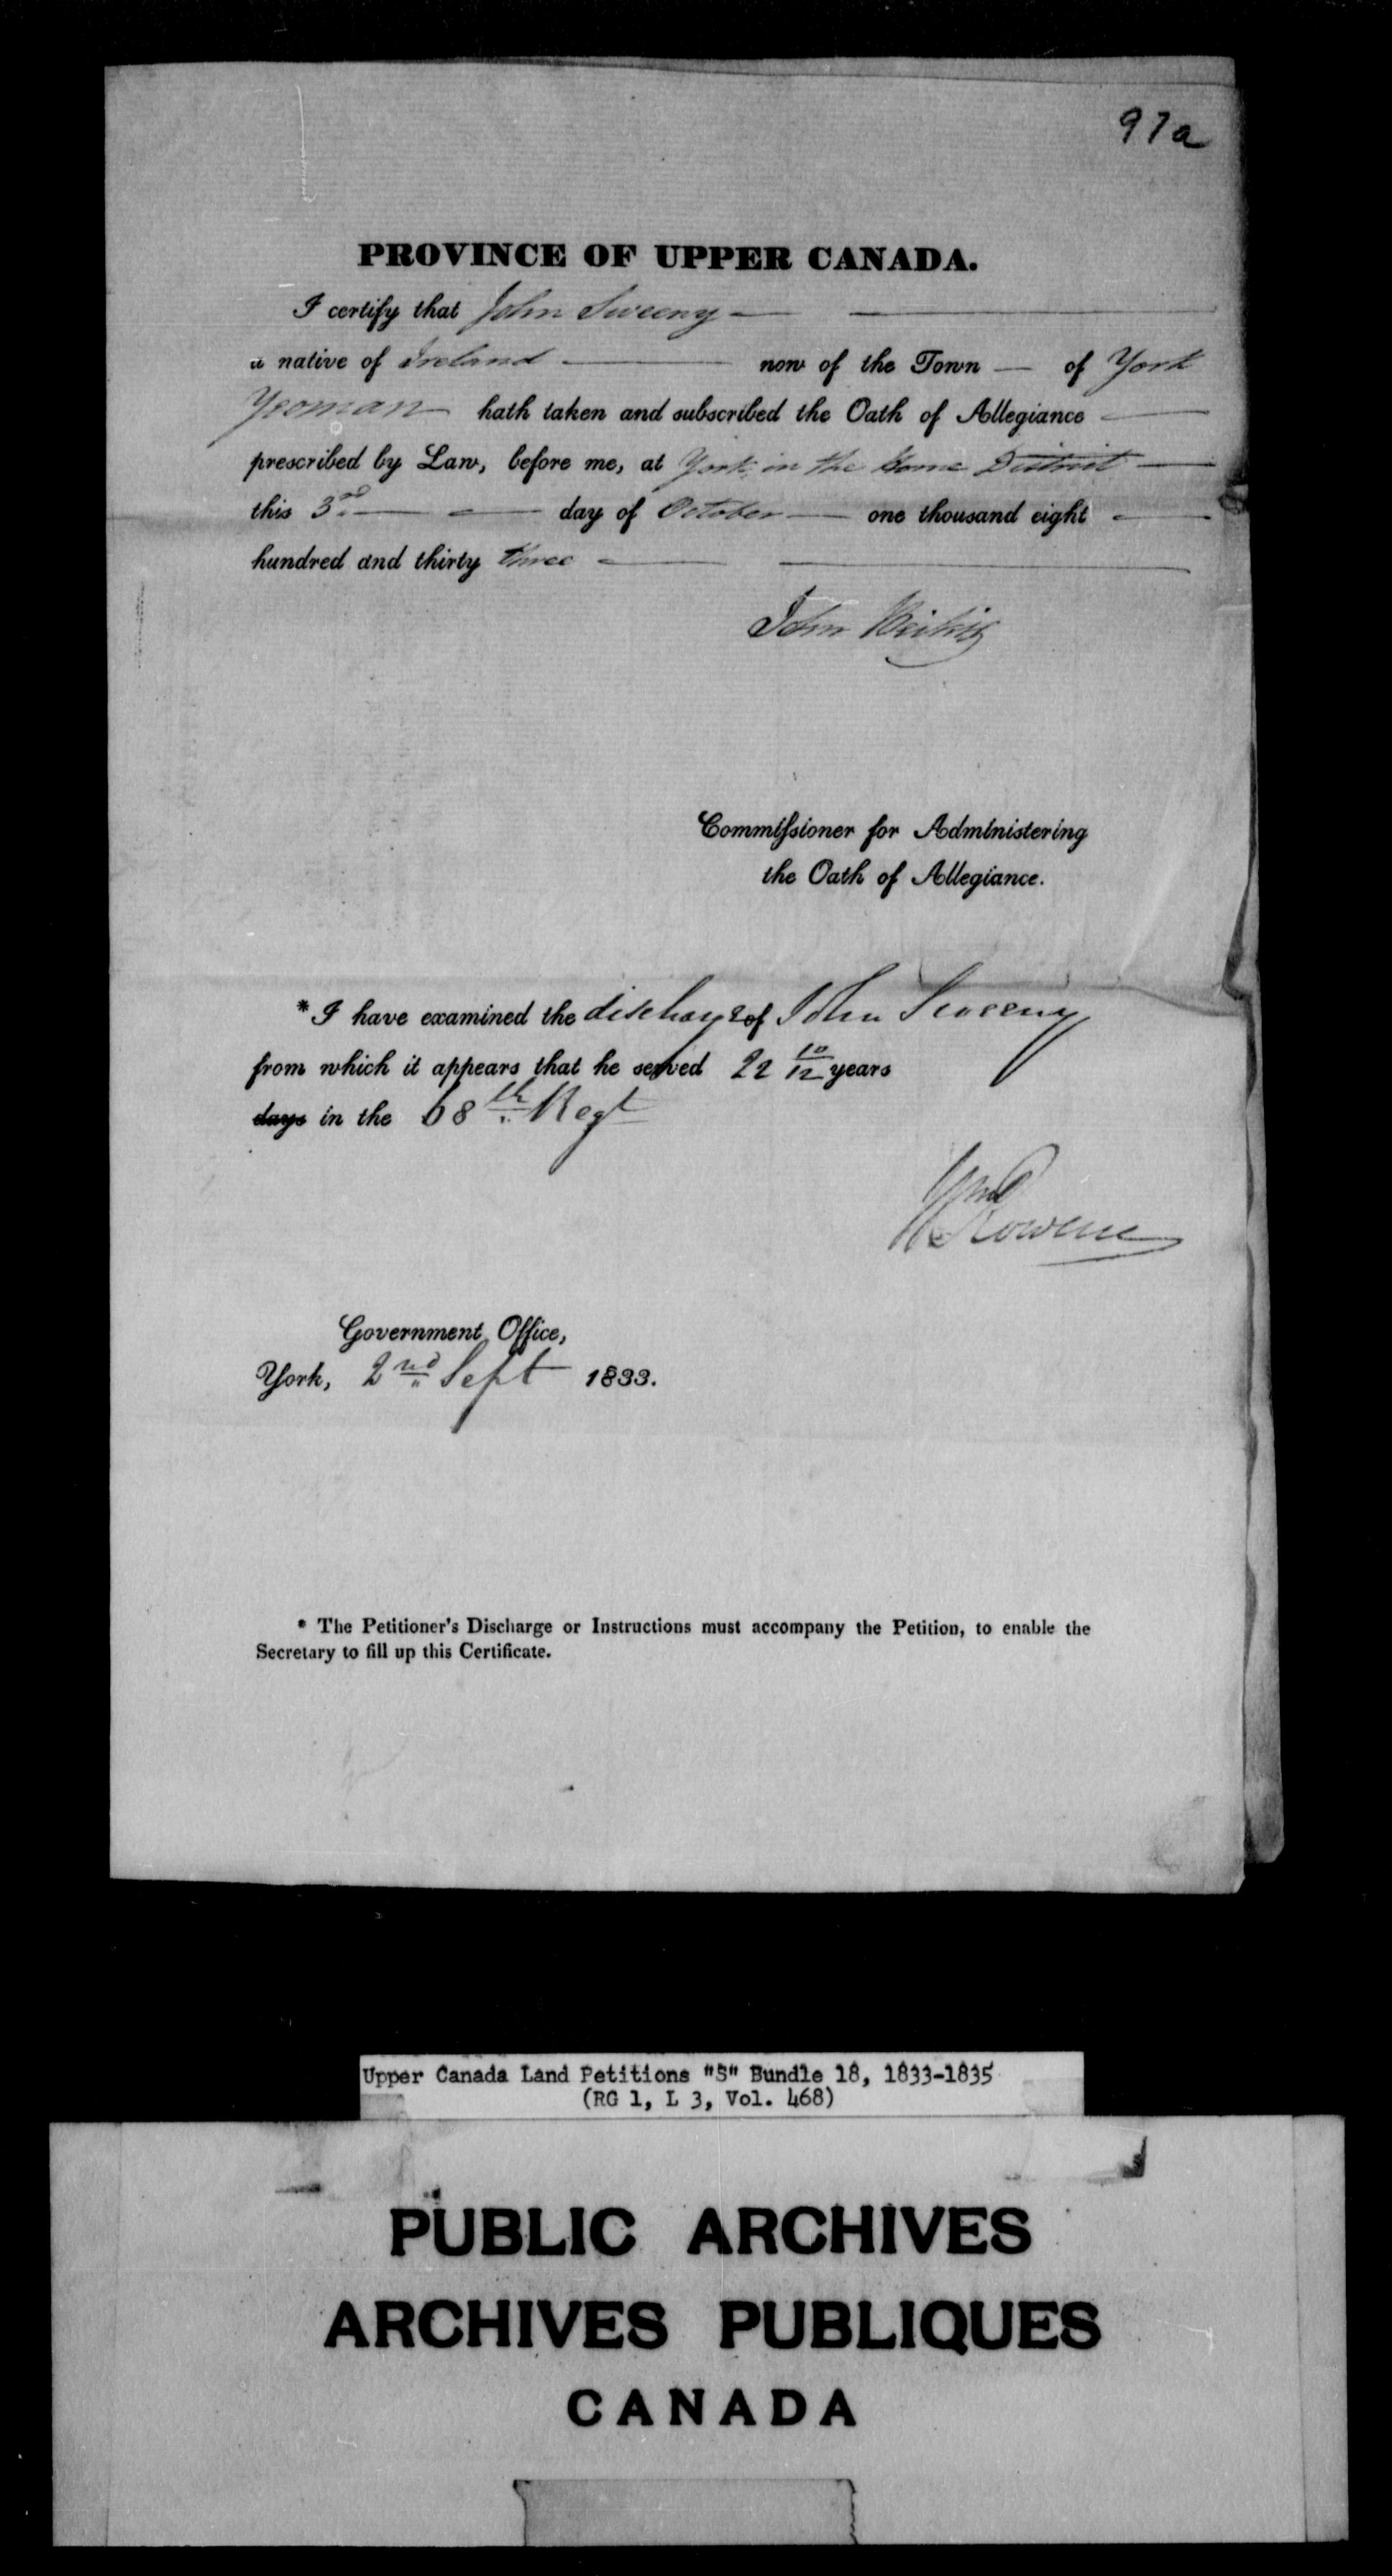 97a
PROVINCE OF UPPER CANADA.
I certify that John Sweeny
a native of Ireland now of the Town of York
Yeoman hath taken and subscribed the Oath of Allegiance
prescribed by Law, before me, at York in the Home District
this 3rd day of October one thousand eight
hundred and thirty three
John
Commissioner for Administering
the Oath of Allegiance.
* I have examined the discharge of John Sweeny
from which it appears that he served 22 10/12 years
days in the 68th Regt
Wm Rowan
Government Office,
York, 2nd Sept 1833.
* The Petitioner's Discharge or Instructions must accompany the Petition, to enable the
Secretary to fill up this Certificate.
Upper Canada Land Petitions "S" Bundle 18, 1833-1835
(RG 1, L 3, Vol. 468)
PUBLIC ARCHIVES
ARCHIVES PUBLIQUES
CANADA